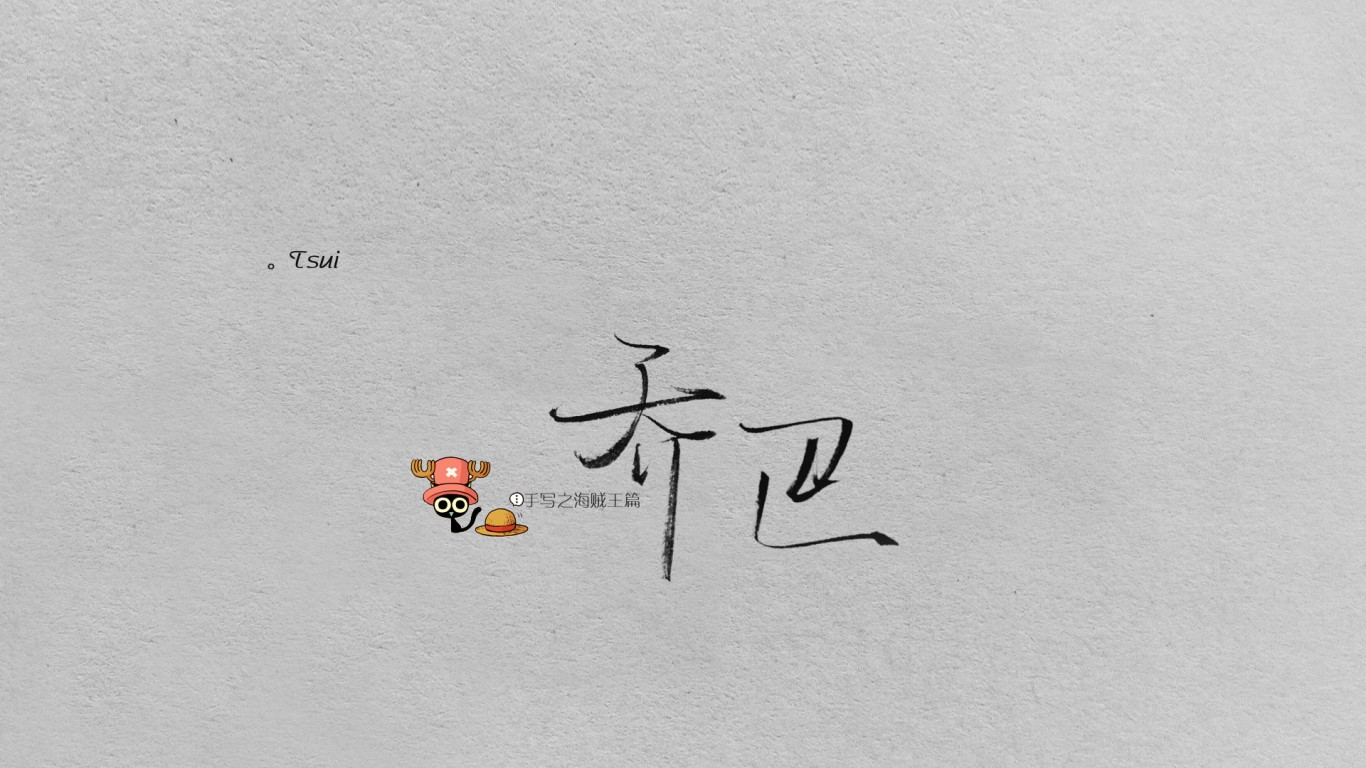 。Tsui
乔巴
手写之海贼王篇